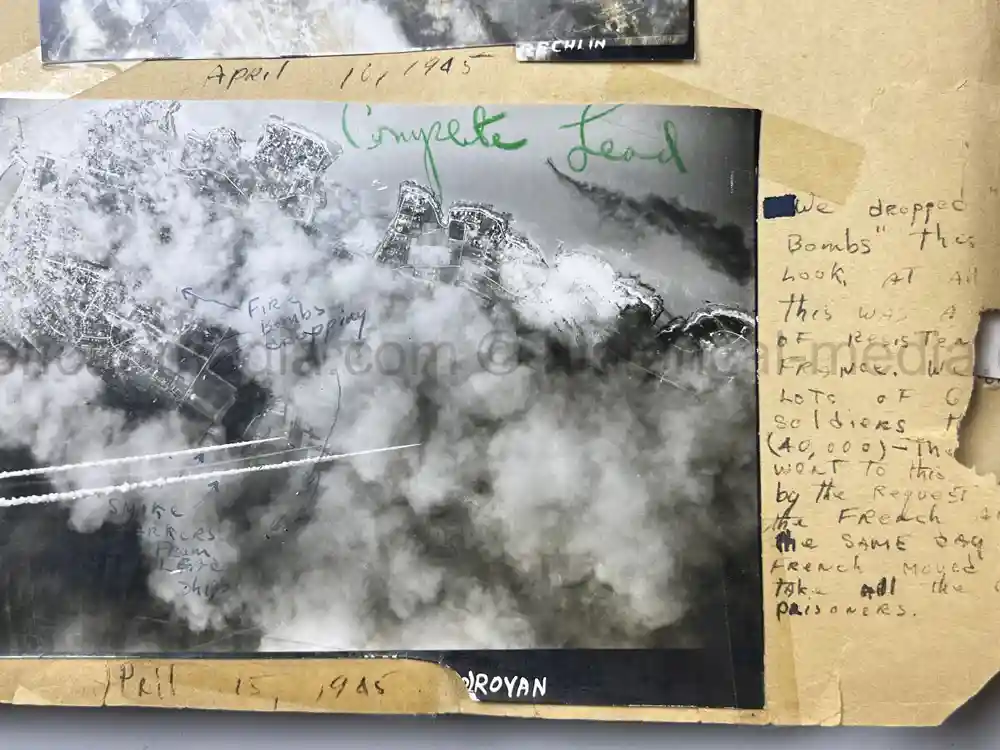 RECHLIN
April 10, 1945
Complete Lead
Fire
Bombs
dropping
SMoKe
MARKERS
From
LEAD
ship
ROYAN
April 15, 1945
We dropped "
Bombs" This
Look, AT All
This was A
OF Resisten
FRANCE. W
LoTs oF G
soldiers
(40,000)–The
went To this
by the Request
the FRench
the SAME DAY
FRENch Moved
TAKe All the
prisoners.
historical-media.com © historical-media